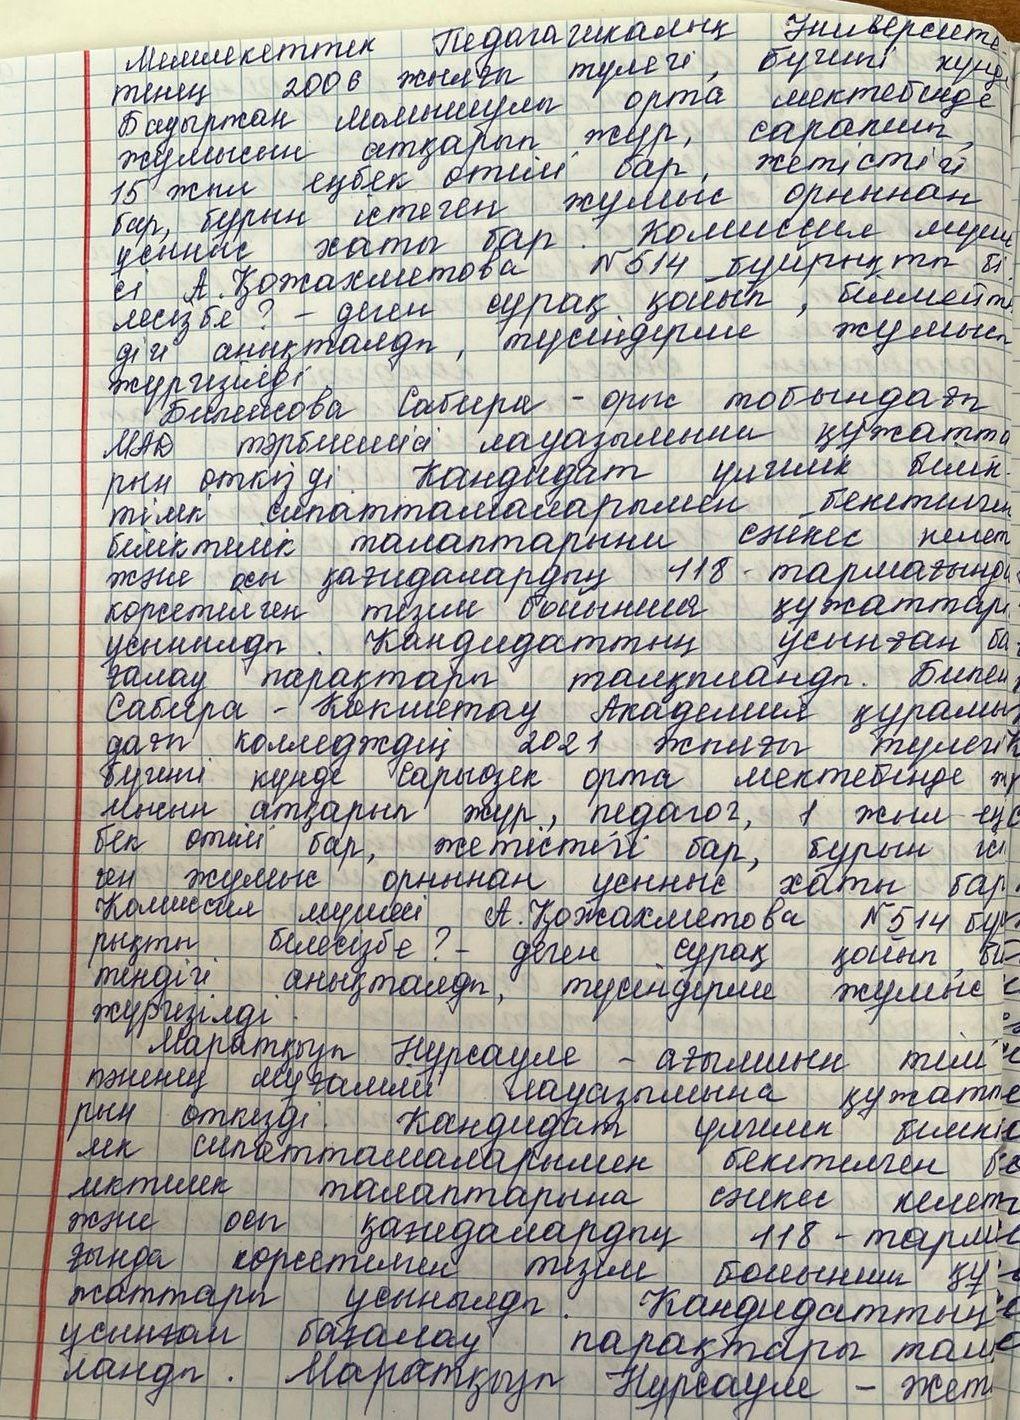 Мемлекеттек Педагагикалық Университе-
тенең 2006 жылғы түлегі, бүгінгі күнде
Бауыржан Момышұлы орта мектебінде
жұмысын атқарып жүр, сарапшы,
15 жыл еңбек өтілі бар, жетістігі
бар, бұрын істеген жұмыс орнынан
ұсыныс хаты бар. Комиссия мүше
сі А.Қожахметова №514 бұйрықты бі
лесізбе? - деген сұрақ қойып, білмейті
дігі анықталды, түсіндірме жұмысы
жүргізілді
Бипеисова Сабира - орыс тобындағы
МАД тәрбиешісі лауазымына құжатта
рын өткізді. Кандидат үлгілік білік-
тілік сипаттамаларымен бекітілген
біліктілік талаптарына сәйкес келеті
және осы қағидалардың 118-тармағында
көрсетілген тізім бойынша құжаттары
ұсынылды. Кандидаттың ұсынған ба
ғалау парақтары талқыланды. Бипеи
Сабира - Көкшетау Академия құрамын
дағы колледждің 2021 жылғы түлегі
бүгінгі күнде Сарыөзек орта мектебінде жұ
мысын атқарып жүр, педагог, 1 жыл ең
бек өтілі бар, жетістігі бар, бұрын іс
ген жұмыс орнынан ұсыныс хаты бар
Комиссия мүшесі А.Қожахметова №514 бұй
рықты білесізбе? - деген сұрақ қойып, бі
тендігі анықталды, түсіндірме жұмыс
жүргізілді.
Маратқызы Нұрсәуле - ағылшын тілі
пәнінең мұғалімі лауазымына құжатта
рын өткізді. Кандидат үлгілік білікті
лік сипаттамаларымен бекітілген бі
ліктілік талаптарына сәйкес келеті
және осы қағидалардың 118-тарма
ғында көрсетілген тізім бойынша құ
жаттары ұсынылды. Кандидаттың
ұсынған бағалау парақтары талқы
ланды. Маратқызы Нұрсәуле - Жет